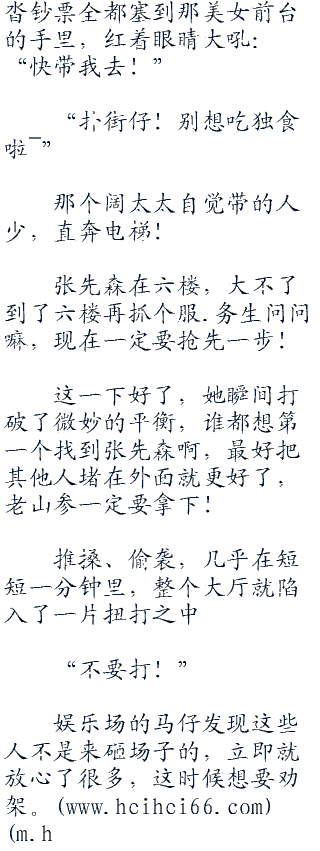 沓钞票全都塞到那美女前台
的手里，红着眼睛大吼：
“快带我去！”
“扑街仔！别想吃独食
啦¯”
那个阔太太自觉带的人
少，直奔电梯！
张先森在六楼，大不了
到了六楼再抓个服.务生问问
嘛，现在一定要抢先一步！
这一下好了，她瞬间打
破了微妙的平衡，谁都想第
一个找到张先森啊，最好把
其他人堵在外面就更好了，
老山参一定要拿下！
推搡、偷袭，几乎在短
短一分钟里，整个大厅就陷
入了一片扭打之中
“不要打！”
娱乐场的马仔发现这些
人不是来砸场子的，立即就
放心了很多，这时候想要劝
架。(www.hcihci66.com)
(m.h